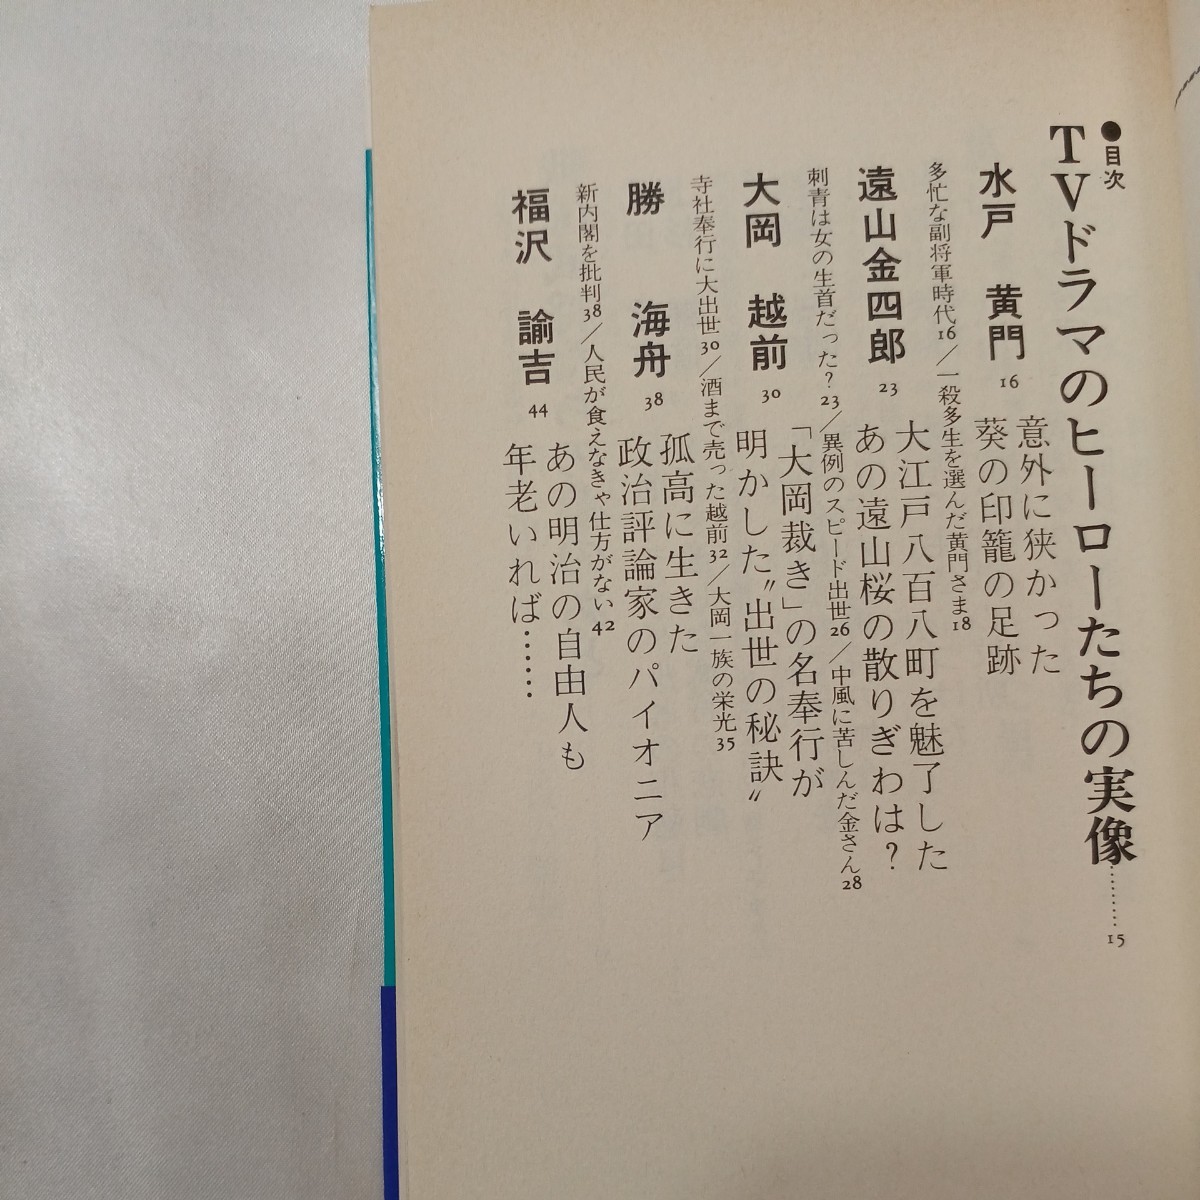 ●目次
TVドラマのヒーローたちの実像………15
水戸 黄門 16
意外に狭かった
葵の印籠の足跡
多忙な副将軍時代16／一殺多生を選んだ黄門さま18
遠山金四郎 23
大江戸八百八町を魅了した
あの遠山桜の散りぎわは？
刺青は女の生首だった？23／異例のスピード出世26／中風に苦しんだ金さん28
大岡 越前 30
「大岡裁き」の名奉行が
明かした〝出世の秘訣〟
寺社奉行に大出世30／酒まで売った越前32／大岡一族の栄光35
勝 海舟 38
孤高に生きた
政治評論家のパイオニア
新内閣を批判38／人民が食えなきゃ仕方がない42
福沢 諭吉 44
あの明治の自由人も
年老いれば……